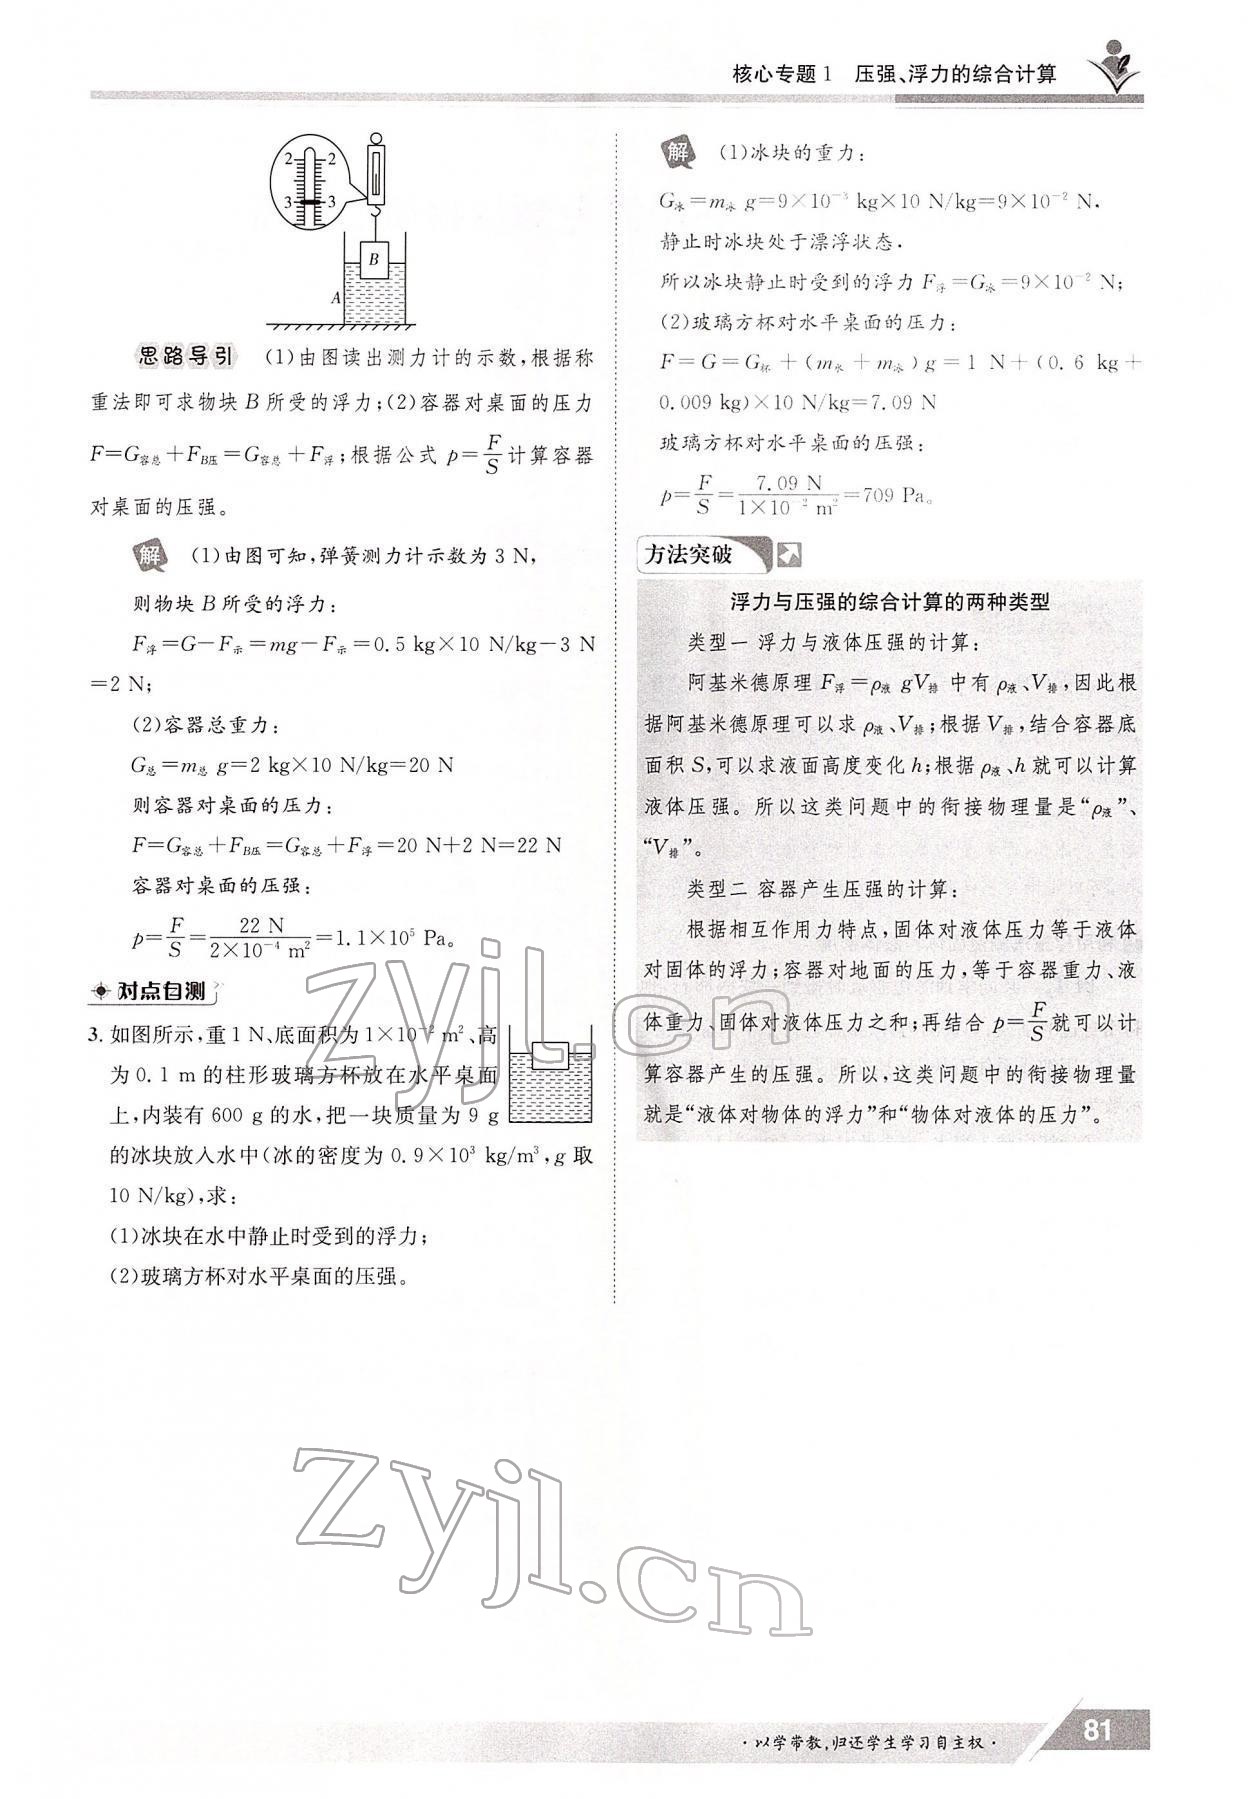 核心专题1 压强、浮力的综合计算
2 2
3 3
B
A
思路导引 (1)由图读出测力计的示数,根据称
重法即可求物块 B 所受的浮力;(2)容器对桌面的压力
F=G容总+F_B压=G容总+F浮;根据公式 p=F/S 计算容器
对桌面的压强。
解 (1)由图可知,弹簧测力计示数为 3 N,
则物块 B 所受的浮力:
F浮=G-F示=mg-F示=0.5 kg×10 N/kg-3 N
=2 N;
(2)容器总重力:
G总=m总 g=2 kg×10 N/kg=20 N
则容器对桌面的压力:
F=G容总+F_B压=G容总+F浮=20 N+2 N=22 N
容器对桌面的压强:
p=F/S=22 N/2×10⁻⁴ m²=1.1×10⁵ Pa。
对点自测
3. 如图所示,重 1 N、底面积为 1×10⁻² m²、高
为 0.1 m 的柱形玻璃方杯放在水平桌面
上,内装有 600 g 的水,把一块质量为 9 g
的冰块放入水中(冰的密度为 0.9×10³ kg/m³,g 取
10 N/kg),求:
(1)冰块在水中静止时受到的浮力;
(2)玻璃方杯对水平桌面的压强。
解 (1)冰块的重力:
G冰=m冰 g=9×10⁻³ kg×10 N/kg=9×10⁻² N,
静止时冰块处于漂浮状态,
所以冰块静止时受到的浮力 F浮=G冰=9×10⁻² N;
(2)玻璃方杯对水平桌面的压力:
F=G=G杯+(m水+m冰)g=1 N+(0.6 kg+
0.009 kg)×10 N/kg=7.09 N
玻璃方杯对水平桌面的压强:
p=F/S=7.09 N/1×10⁻² m²=709 Pa。
方法突破
浮力与压强的综合计算的两种类型
类型一 浮力与液体压强的计算:
阿基米德原理 F浮=ρ液 gV排 中有 ρ液、V排,因此根
据阿基米德原理可以求 ρ液、V排;根据 V排,结合容器底
面积 S,可以求液面高度变化 h;根据 ρ液、h 就可以计算
液体压强。所以这类问题中的衔接物理量是“ρ液”、
“V排”。
类型二 容器产生压强的计算:
根据相互作用力特点,固体对液体压力等于液体
对固体的浮力;容器对地面的压力,等于容器重力、液
体重力、固体对液体压力之和;再结合 p=F/S 就可以计
算容器产生的压强。所以,这类问题中的衔接物理量
就是“液体对物体的浮力”和“物体对液体的压力”。
zyjl.cn
zyjl.cn
·以学带教,归还学生学习自主权·
81